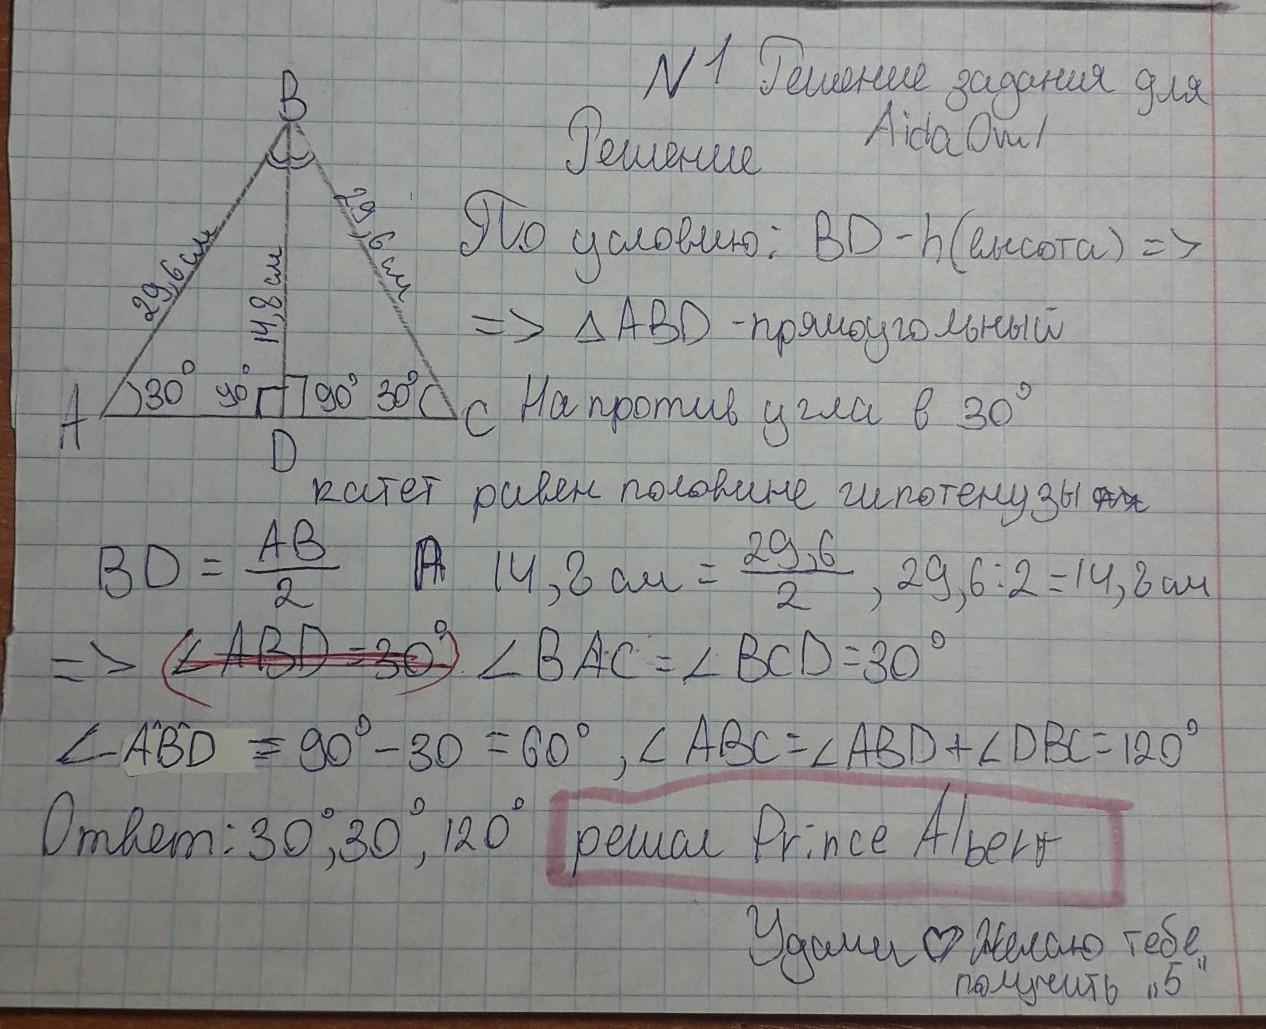 N1 Решение задания для
AidaOm1
Решение
B
29,6 см
29,6 см
14,8 см
A 30° 90° 90° 30° C
D
По условию: BD - h(высота) =>
=> △ABD - прямоугольный
Напротив угла в 30°
катет равен половине гипотенузы
BD = AB/2 14,8 см = 29,6/2, 29,6:2=14,8 см
=> (∠ABD=30°) ∠BAC=∠BCD=30°
∠ABD = 90°-30=60°, ∠ABC=∠ABD+∠DBC=120°
Ответ: 30°, 30°, 120°
решал Prince Albert
Удачи ♡ Желаю тебе
получить „5"